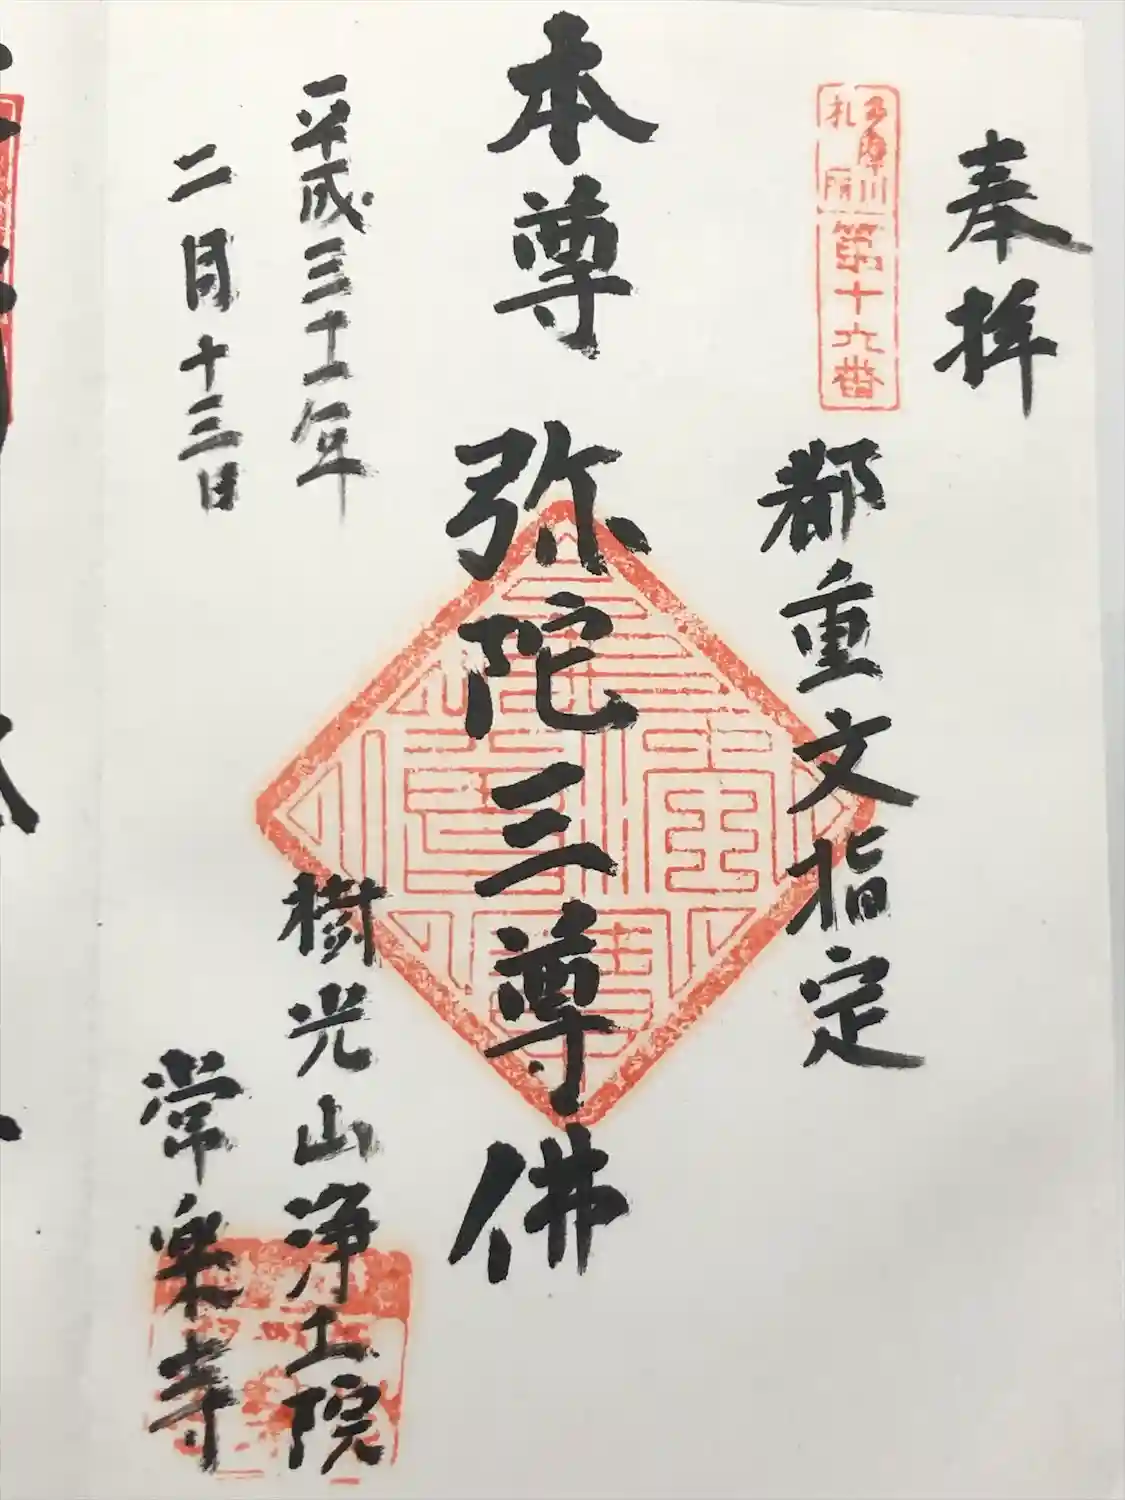 奉拝
多摩川
札所
第十六番
都重文指定
本尊 弥陀三尊佛
平成三十一年
二月十三日
樹光山浄土院
常楽寺